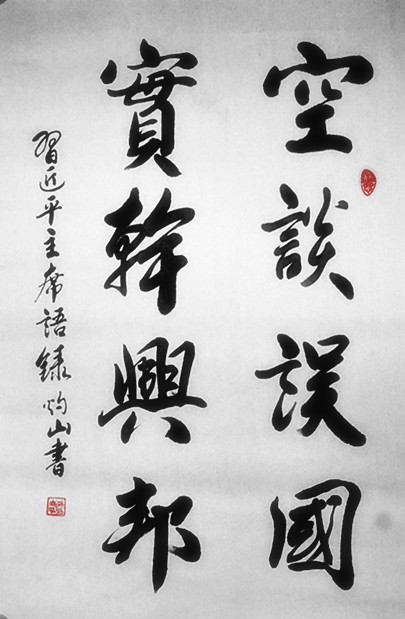 空談誤國
實幹興邦
習近平主席語録灼山書